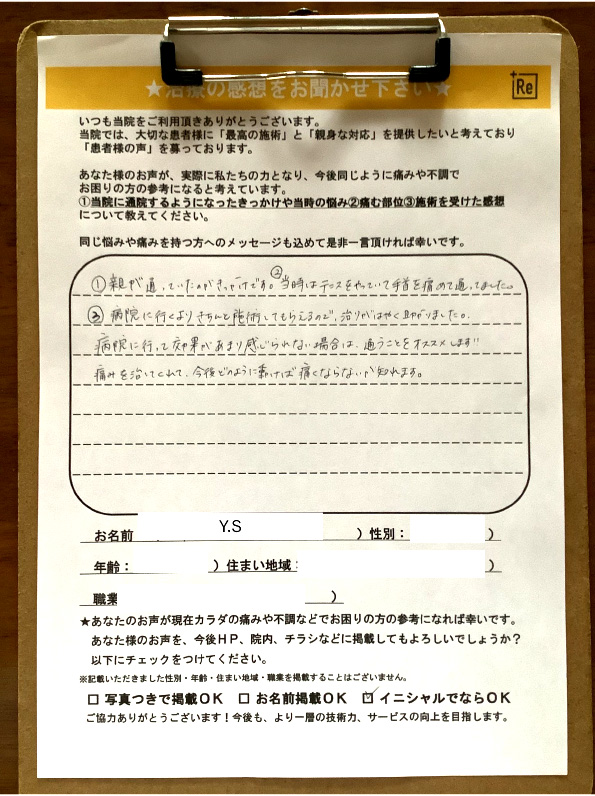 ★治療の感想をお聞かせ下さい★
+Re
いつも当院をご利用頂きありがとうございます。
当院では、大切な患者様に「最高の施術」と「親身な対応」を提供したいと考えており
「患者様の声」を募っております。
あなた様のお声が、実際に私たちの力となり、今後同じように痛みや不調で
お困りの方の参考になると考えています。
①当院に通院するようになったきっかけや当時の悩み②痛む部位③施術を受けた感想
について教えてください。
同じ悩みや痛みを持つ方へのメッセージも込めて是非一言頂ければ幸いです。
①親が通っていたのがきっかけです。②当時はテニスをやっていて手首を痛めて通ってました。
③病院に行くよりきちんと施術してもらえるので、治りがはやく助かりました。
病院に行って効果があまり感じられない場合は、通うことをオススメします!!
痛みを治してくれて、今後どのように動けば痛くならないか知れます。
お名前 Y.S ) 性別: )
年齢: ) 住まい地域: )
職業 )
★あなたのお声が現在カラダの痛みや不調などでお困りの方の参考になれば幸いです。
あなた様のお声を、今後HP、院内、チラシなどに掲載してもよろしいでしょうか?
以下にチェックをつけてください。
※記載いただきました性別・年齢・住まい地域・職業を掲載することはございません。
□ 写真つきで掲載OK □ お名前掲載OK ☑ イニシャルでならOK
ご協力ありがとうございます!今後も、より一層の技術力、サービスの向上を目指します。